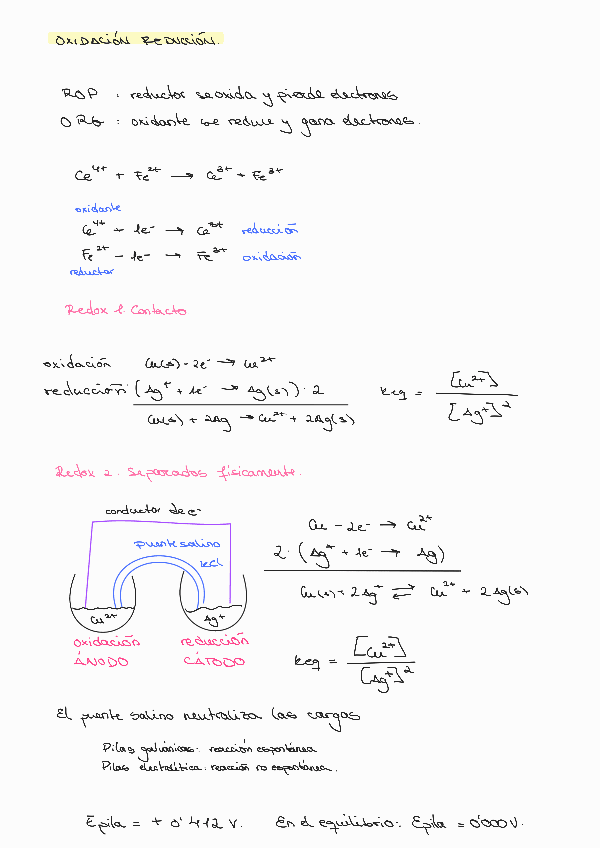 OXIDACIÓN REDUCCIÓN.
ROP : reductor se oxida y pierde electrones
ORG : oxidante se reduce y gana electrones.
Ce⁴⁺ + Fe²⁺ → Ce³⁺ + Fe³⁺
oxidante
Ce⁴⁺ + 1e⁻ → Ce³⁺ reducción
Fe²⁺ - 1e⁻ → Fe³⁺ oxidación
reductor
Redox 1. Contacto
oxidación Cu(s) - 2e⁻ → Cu²⁺
reducción (Ag⁺ + 1e⁻ → Ag(s)) · 2
Cu(s) + 2Ag → Cu²⁺ + 2Ag(s)
keq = [Cu²⁺] / [Ag⁺]²
Redox 2. Separados físicamente.
conductor de e⁻
puente salino
kcl
Cu²⁺ Ag⁺
oxidación reducción
ÁNODO CÁTODO
Cu - 2e⁻ → Cu²⁺
2 · (Ag⁺ + 1e⁻ → Ag)
Cu(s) + 2Ag⁺ ⇄ Cu²⁺ + 2Ag(s)
keq = [Cu²⁺] / [Ag⁺]²
El puente salino neutraliza las cargas
Pilas galvánicas: reacción espontánea
Pilas electrolítica: reacción no espontánea.
Epila = + 0'412 V. En el equilibrio: Epila = 0'000 V.